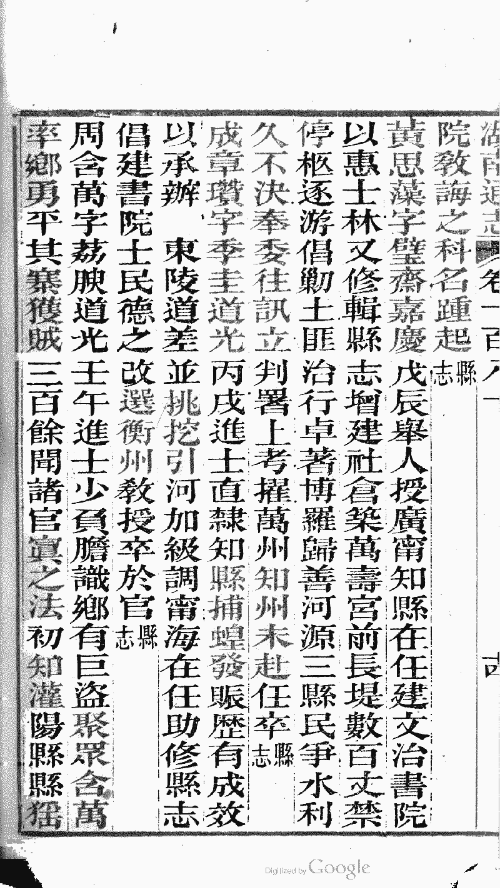 湖南通志 卷一百八十
院敎誨之科名踵起縣志
黃思藻字璧齋嘉慶戊辰舉人授廣甯知縣在任建文治書院
以惠士林又修輯縣志增建社倉築萬壽宮前長堤數百丈禁
停柩逐游倡勦土匪治行卓著博羅歸善河源三縣民爭水利
久不決奉委往訊立判署上考擢萬州知州未赴任卒縣志
成章瓚字季圭道光丙戌進士直隸知縣捕蝗發賑歴有成效
以承辦 東陵道差並挑挖引河加級調甯海在任助修縣志
倡建書院士民德之改選衡州敎授卒於官縣志
周含萬字荔腴道光壬午進士少負膽識鄉有巨盜聚眾含萬
率鄉勇平其寨獲賊三百餘聞諸官寘之法初知灌陽縣縣猺
Digitized by Google